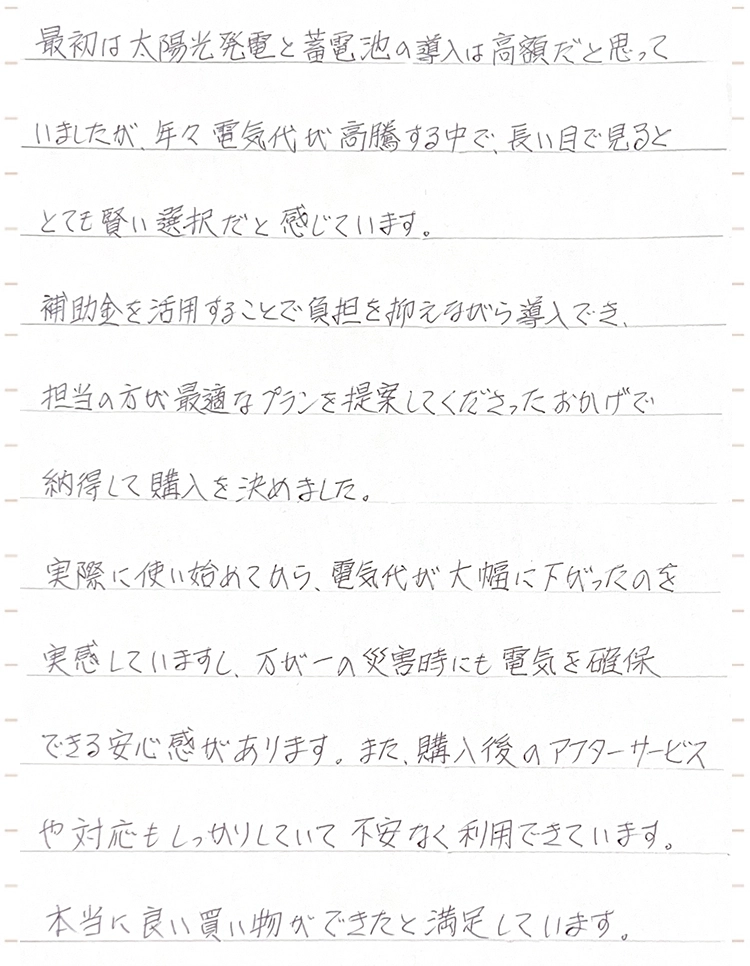 最初は太陽光発電と蓄電池の導入は高額だと思って
いましたが、年々電気代が高騰する中で、長い目で見ると
とても賢い選択だと感じています。
補助金を活用することで負担を抑えながら導入でき、
担当の方が最適なプランを提案してくださったおかげで
納得して購入を決めました。
実際に使い始めてから、電気代が大幅に下がったのを
実感していますし、万が一の災害時にも電気を確保
できる安心感があります。また、購入後のアフターサービス
や対応もしっかりしていて不安なく利用できています。
本当に良い買い物ができたと満足しています。